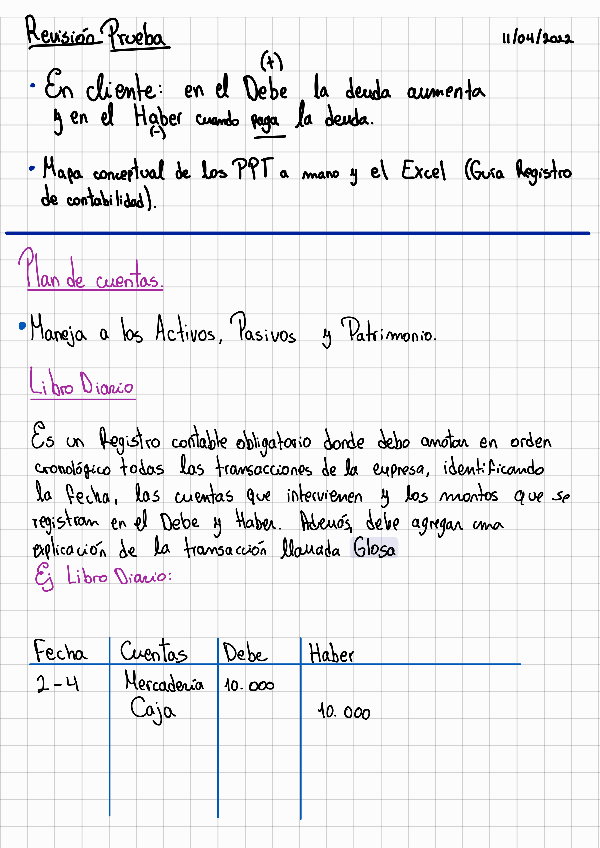 Revisión Prueba
11/04/2022
(+)
• En cliente: en el Debe la deuda aumenta
y en el Haber cuando paga la deuda.
(-)
• Mapa conceptual de los PPT a mano y el Excel (Guía Registro
de contabilidad).
Plan de cuentas.
• Maneja a los Activos, Pasivos y Patrimonio.
Libro Diario
Es un Registro contable obligatorio donde debo anotar en orden
cronológico todas las transacciones de la empresa, identificando
la fecha, las cuentas que intervienen y los montos que se
registran en el Debe y Haber. Además, debe agregar una
explicación de la transacción llamada Glosa
Ej Libro Diario:
Fecha Cuentas Debe Haber
2-4 Mercadería 10.000
Caja 10.000